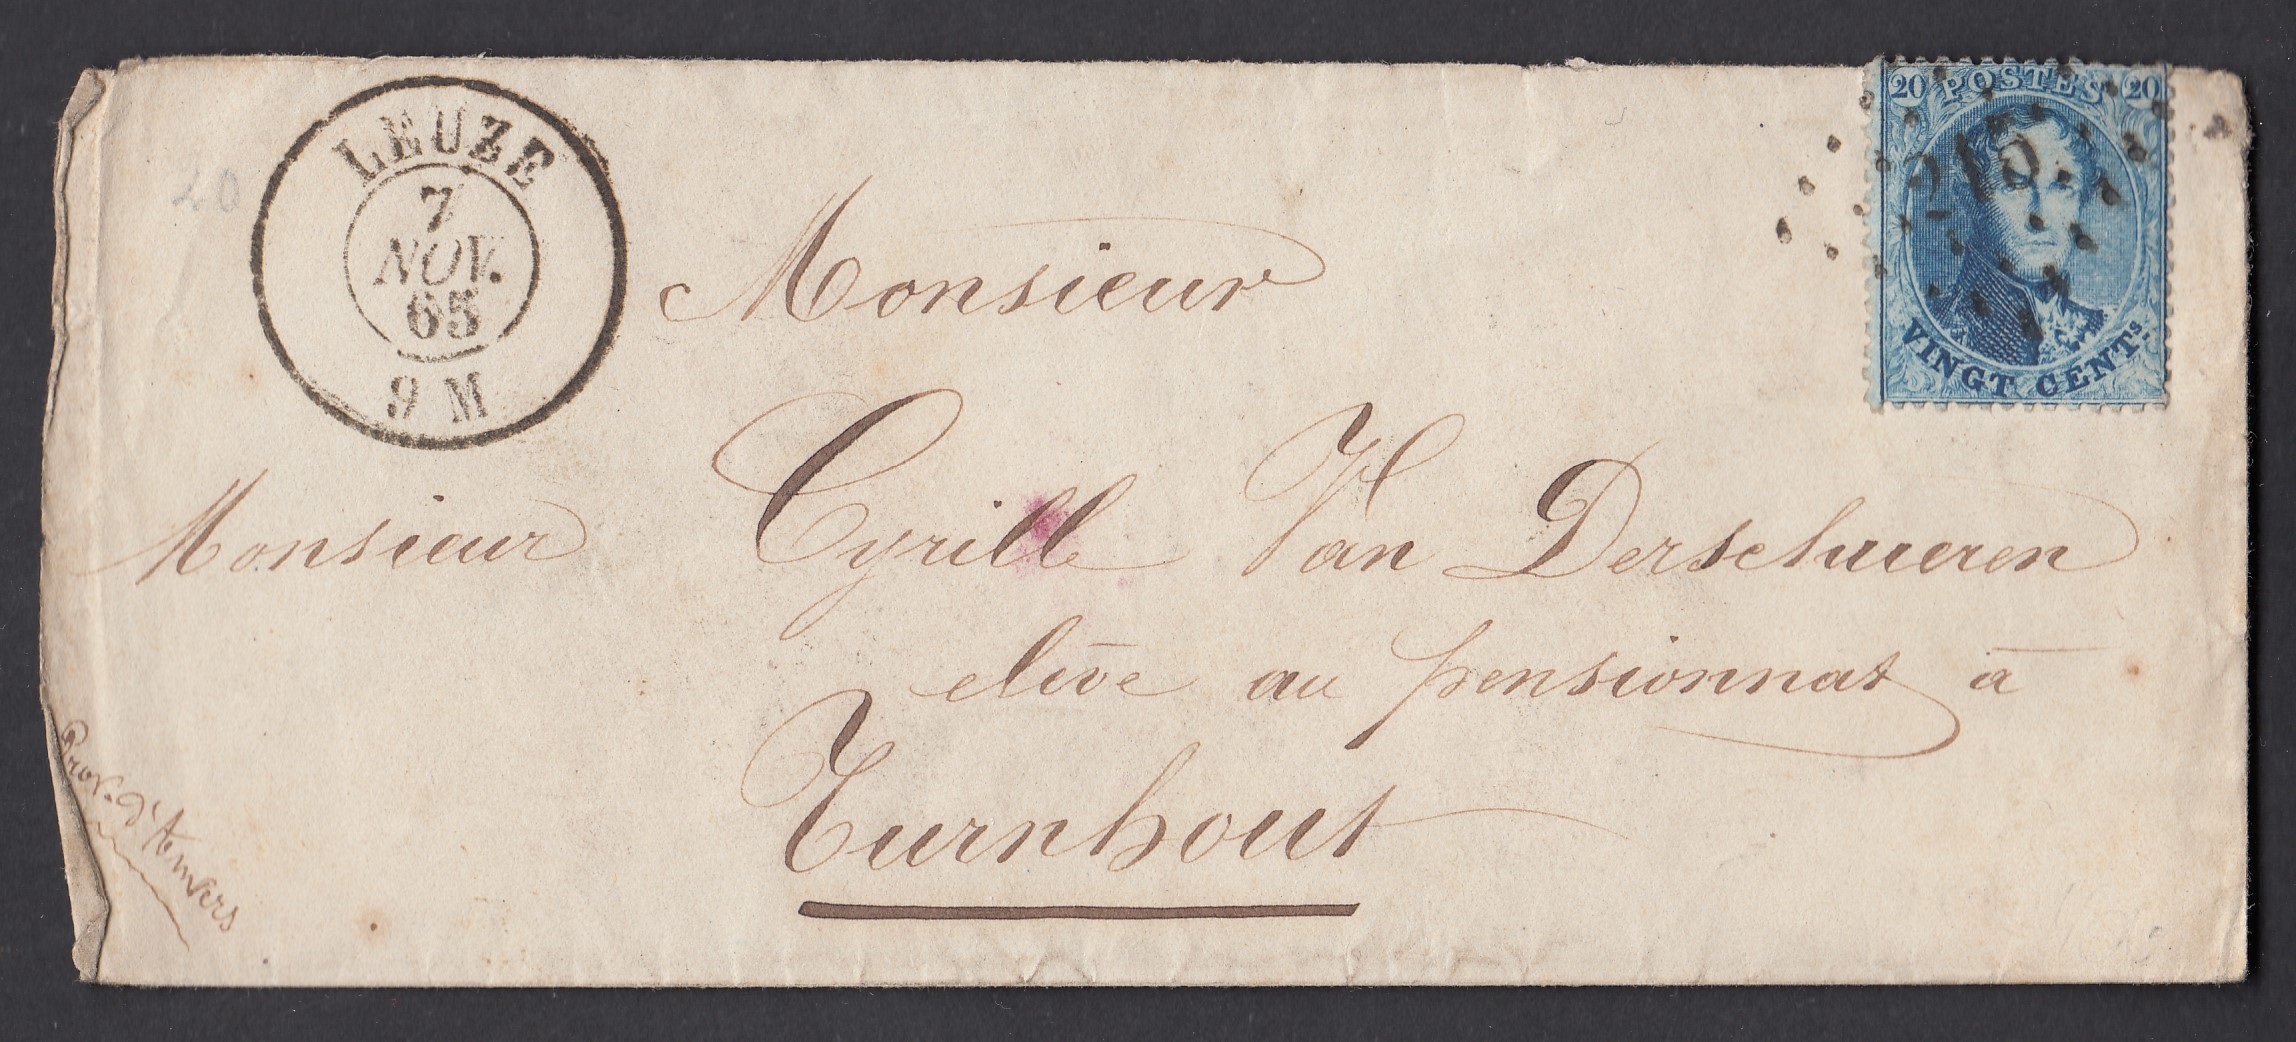 LEUZE
7
NOV.
65
9 M
20 POSTES 20
215
VINGT CENTS.
Monsieur
Monsieur Cyrille Van Derschueren
elève au pensionnat à
Turnhout
Prov. d'Anvers
20